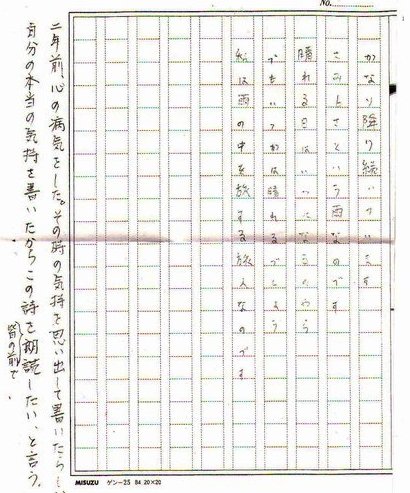 No.
かなり降り続いています
さみしさという雨なのです
晴れる日はいつになるのやら
でもいつかは晴れるでしょう
私は雨の中を旅する旅人なのです
二年前、心の病気をした。その時の気持を思い出して書いたらし
自分の本当の気持を書いたからこの詩を朗読したい、と言う。
皆の前で
MISUZU ゲンー25 B4 20×20